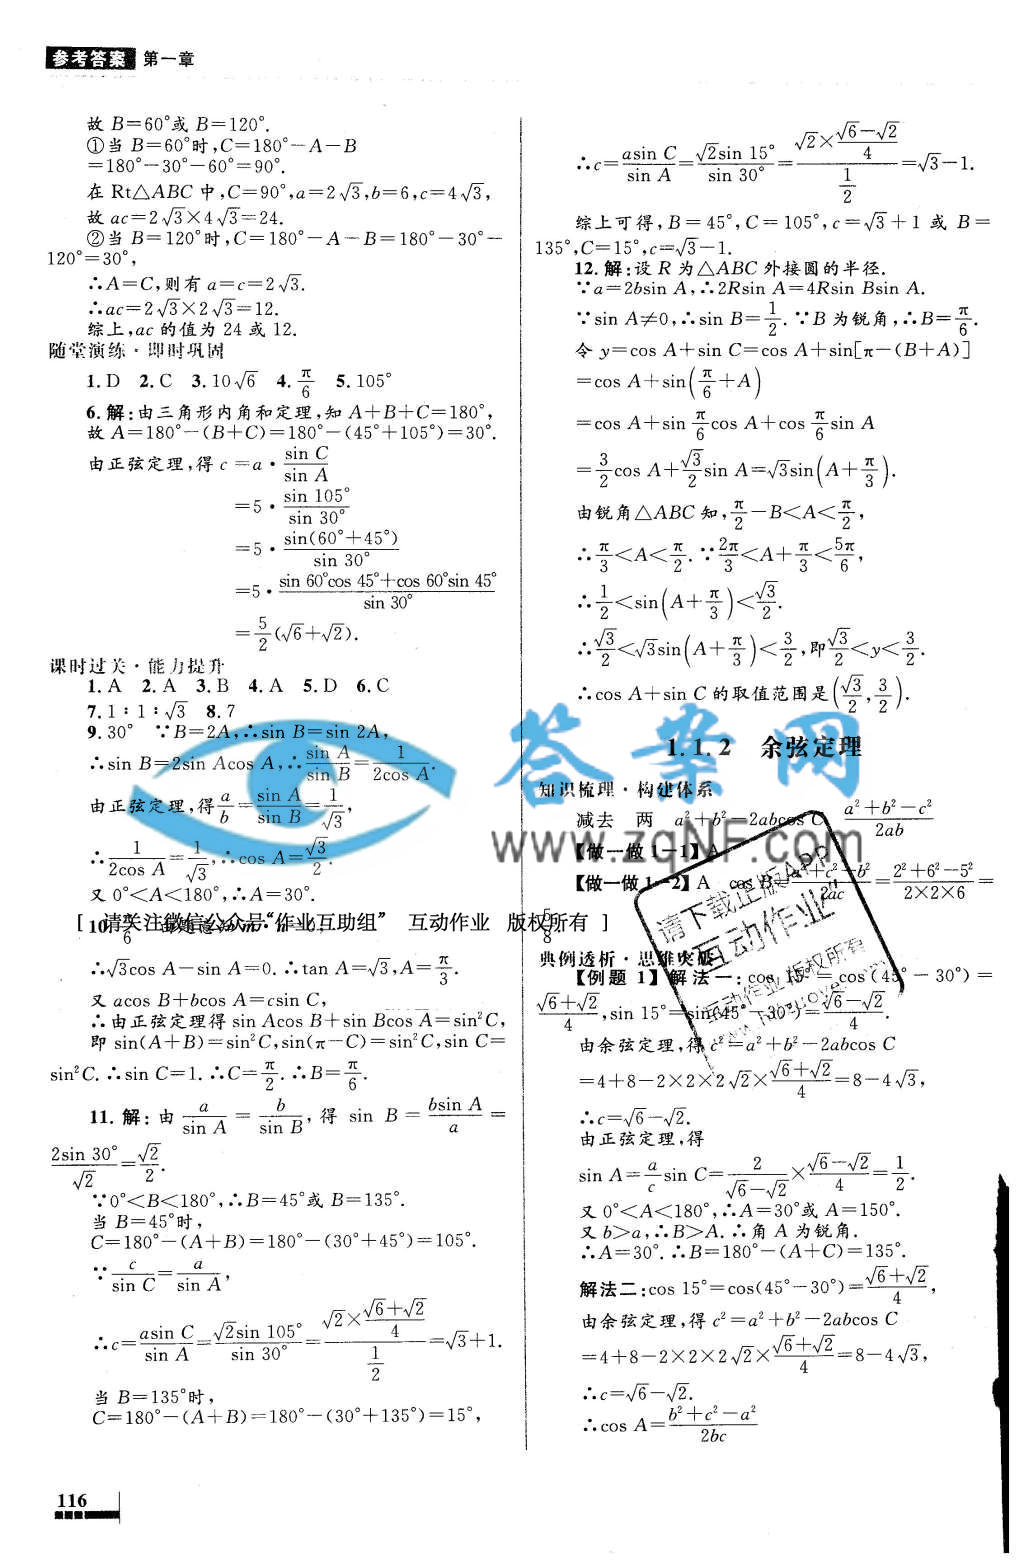 参考答案 第一章
故 B=60°或 B=120°.
①当 B=60°时,C=180°−A−B
=180°−30°−60°=90°.
在 Rt△ABC 中,C=90°,a=2√3,b=6,c=4√3,
故 ac=2√3×4√3=24.
②当 B=120°时,C=180°−A−B=180°−30°−
120°=30°,
∴A=C,则有 a=c=2√3.
∴ac=2√3×2√3=12.
综上,ac 的值为 24 或 12.
随堂演练·即时巩固
1. D 2. C 3. 10√6 4. π/6 5. 105°
6. 解:由三角形内角和定理,知 A+B+C=180°,
故 A=180°−(B+C)=180°−(45°+105°)=30°.
由正弦定理,得 c=a·sin C/sin A
=5·sin 105°/sin 30°
=5·sin(60°+45°)/sin 30°
=5·(sin 60°cos 45°+cos 60°sin 45°)/sin 30°
=5/2(√6+√2).
课时过关·能力提升
1. A 2. A 3. B 4. A 5. D 6. C
7. 1∶1∶√3 8. 7
9. 30° ∵B=2A,∴sin B=sin 2A,
∴sin B=2sin Acos A,∴sin A/sin B=1/(2cos A).
由正弦定理,得a/b=sin A/sin B=1/√3,
∴1/(2cos A)=1/√3,∴cos A=√3/2.
又 0°<A<180°,∴A=30°.
[ 请关注微信公众号“作业互助组” 互动作业 版权所有 ]
10. π/6 m·n=0,
∴√3cos A−sin A=0.∴tan A=√3,A=π/3.
又 acos B+bcos A=csin C,
∴由正弦定理得 sin Acos B+sin Bcos A=sin²C,
即 sin(A+B)=sin²C,sin(π−C)=sin²C,sin C=
sin²C.∴sin C=1.∴C=π/2.∴B=π/6.
11. 解:由 a/sin A = b/sin B,得 sin B = bsin A/a =
2sin 30°/√2=√2/2.
∵0°<B<180°,∴B=45°或 B=135°.
当 B=45°时,
C=180°−(A+B)=180°−(30°+45°)=105°.
∵c/sin C=a/sin A,
∴c=asin C/sin A=√2sin 105°/sin 30°=(√2×(√6+√2)/4)/(1/2)=√3+1.
当 B=135°时,
C=180°−(A+B)=180°−(30°+135°)=15°,
∴c=asin C/sin A=√2sin 15°/sin 30°=(√2×(√6−√2)/4)/(1/2)=√3−1.
综上可得,B=45°,C=105°,c=√3+1 或 B=
135°,C=15°,c=√3−1.
12. 解:设 R 为△ABC 外接圆的半径.
∵a=2bsin A,∴2Rsin A=4Rsin Bsin A.
∵sin A≠0,∴sin B=1/2.∵B 为锐角,∴B=π/6.
令 y=cos A+sin C=cos A+sin[π−(B+A)]
=cos A+sin(π/6+A)
=cos A+sin π/6cos A+cos π/6sin A
=3/2cos A+√3/2sin A=√3sin(A+π/3).
由锐角△ABC 知,π/2−B<A<π/2,
∴π/3<A<π/2.∵2π/3<A+π/3<5π/6,
∴1/2<sin(A+π/3)<√3/2.
∴√3/2<√3sin(A+π/3)<3/2,即√3/2<y<3/2.
∴cos A+sin C 的取值范围是(√3/2,3/2).
1.1.2 余弦定理
答案网
www.zqNF.com
知识梳理·构建体系
减去 两 a²+b²−2abcos C (a²+b²−c²)/2ab
【做一做 1−1】A
【做一做 1−2】A cos B=(a²+c²−b²)/2ac=(2²+6²−5²)/(2×2×6)=
5/8
典例透析·思维突破
【例题 1】解法一:cos 15°=cos(45°−30°)=
(√6+√2)/4,sin 15°=sin(45°−30°)=(√6−√2)/4.
请下载正版APP
“互动作业”
互动作业 版权所有
由余弦定理,得 c²=a²+b²−2abcos C
=4+8−2×2×2√2×(√6+√2)/4=8−4√3,
∴c=√6−√2.
由正弦定理,得
sin A=a/c sin C=2/(√6−√2)×(√6−√2)/4=1/2.
又 0°<A<180°,∴A=30°或 A=150°.
又 b>a,∴B>A.∴角 A 为锐角.
∴A=30°.∴B=180°−(A+C)=135°.
解法二:cos 15°=cos(45°−30°)=(√6+√2)/4,
由余弦定理,得 c²=a²+b²−2abcos C
=4+8−2×2×2√2×(√6+√2)/4=8−4√3,
∴c=√6−√2.
∴cos A=(b²+c²−a²)/2bc
116